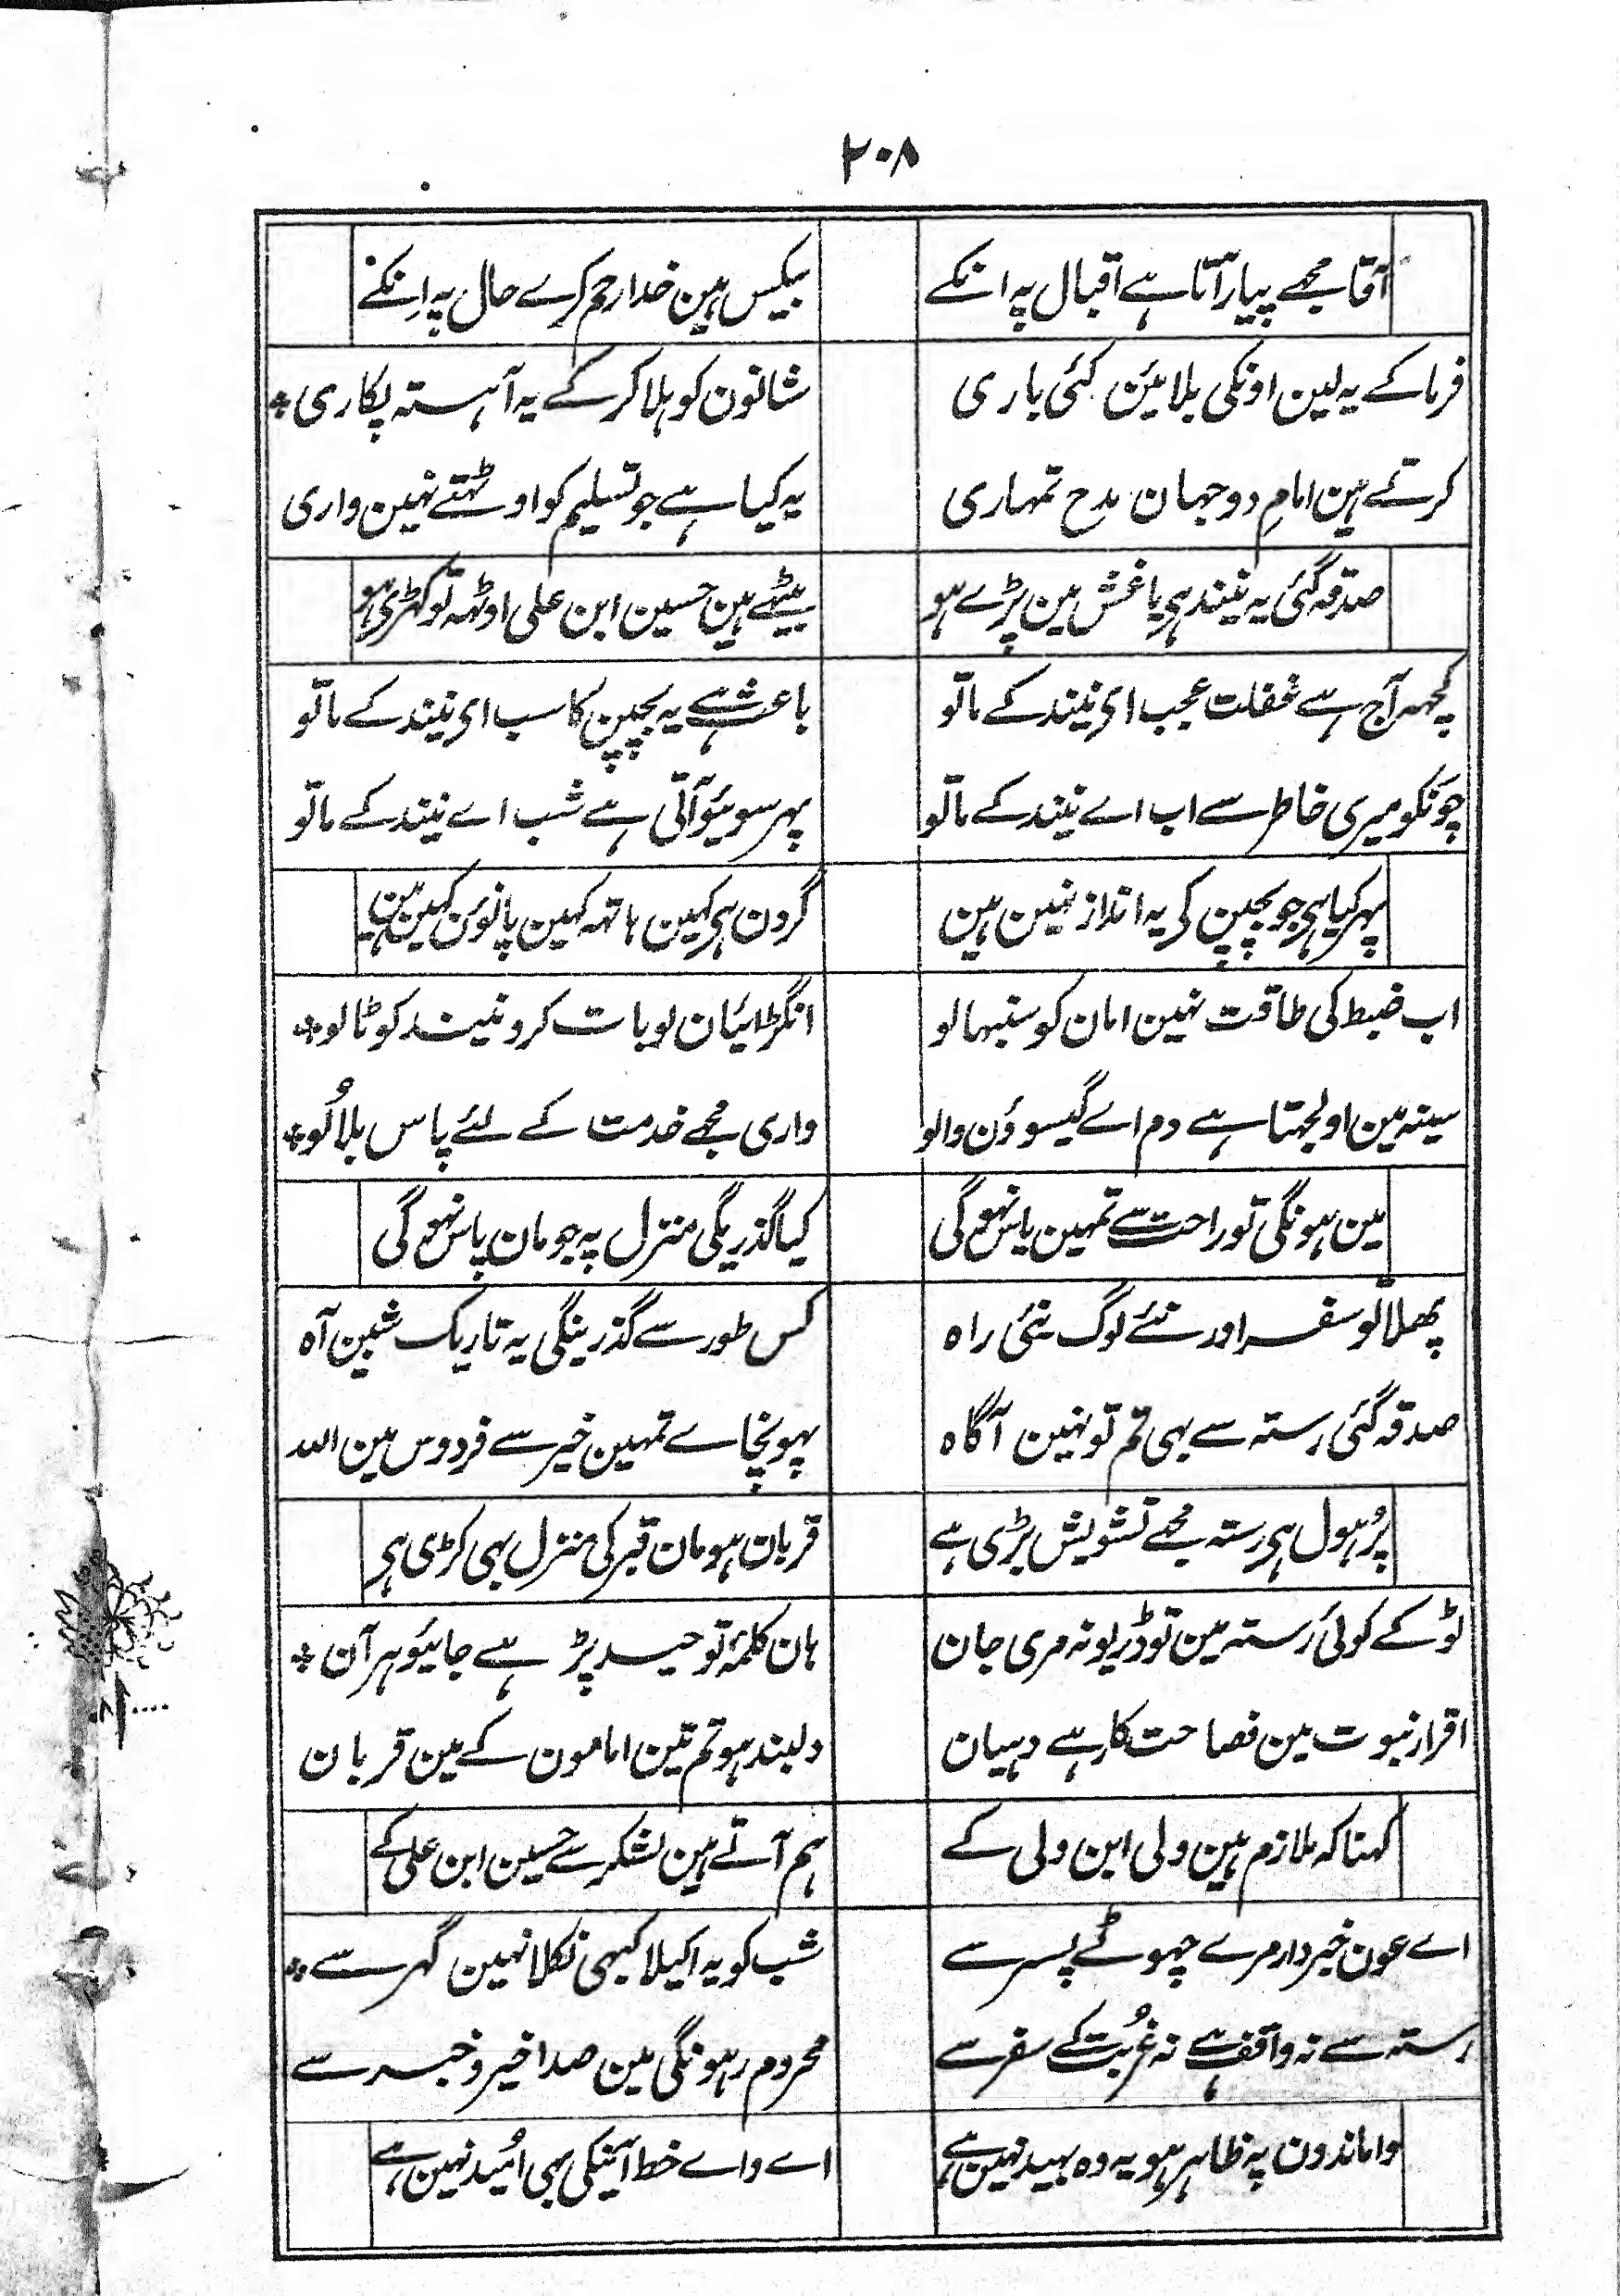 ۲۰۸
آقا مجھے پیار آتا ہے اقبال پہ انکے بیکس ہین خدا رحم کرے حال پہ اِنکے
فرما کے یہ لین اونکی بلائین کئی باری شانون کو ہلا کر کے یہ آہستہ پکاری
کرتے ہین امامِ دو جہان مدح تمہاری یہ کیا ہے جو تسلیم کو اوٹھتے نہین واری
صدقہ گئی یہ نیند ہی یا غش مین پڑے ہو بیٹھے ہین حسین ابن علی اوٹھہ تو کھڑی ہو
کچھہ آج ہے غفلت عجب ای نیند کے ماتو باعث ہے یہ بچپن کا سب ای نیند کے ماتو
چونکو میری خاطر سے اب اے نیند کے ماتو پہر سوئیو آتی ہے شب اے نیند کے ماتو
پہر کیا ہی جو بچپن کی یہ انداز نہین ہین گردن ہی کہین ہاتھہ کہین پانوئن کہین ہین
اب ضبط کی طاقت نہین امان کو سنبہالو انگڑائیان لو بات کرو نیند کو ٹالو
سینہ مین اولجہتا ہے دم اے گیسوؤن والو واری مجھے خدمت کے لئے پاس بلاُلو
مین ہونگی تو راحت سے تمہین یاس نہوگی کیا گذریگی منزل پہ جو مان پاس نہوگی
پھلا تو سفر اور نئے لوگ نئی راہ کس طور سے گذرینگی یہ تاریک شبین آہ
صدقہ گئی رستہ سے بہی تم تو نہین آگاہ پہونچاے تمہین خیر سے فردوس مین اللہ
پُر ہول ہی رستہ مجھے تشویش بڑی ہے قربان ہو مان قبر کی منزل بہی کڑی ہی
ٹوکے کوئی رستہ مین تو ڈریو نہ مری جان ہان کلمۂ توحید پڑہے جائیو ہر آن
اقرار نبوت مین فصاحت کا رہے دہیان دلبند ہو تم تین امامون کے مین قربان
کہنا کہ ملازم ہین ولی ابن ولی کے ہم آتے ہین لشکر سے حسین ابن علی کے
اے عون خبردار مرے چہوٹے پسر سے شب کو یہ اکیلا کبہی نکلا نہین گہر سے
رستہ سے نہ واقف ہے نہ غُربت کے سفر سے محروم رہونگی مین صدا خیر و خبر سے
واماندون پہ ظاہر ہو یہ وہ بہید نہین ہے اے واے خط آنیکی بہی اُمید نہین ہے